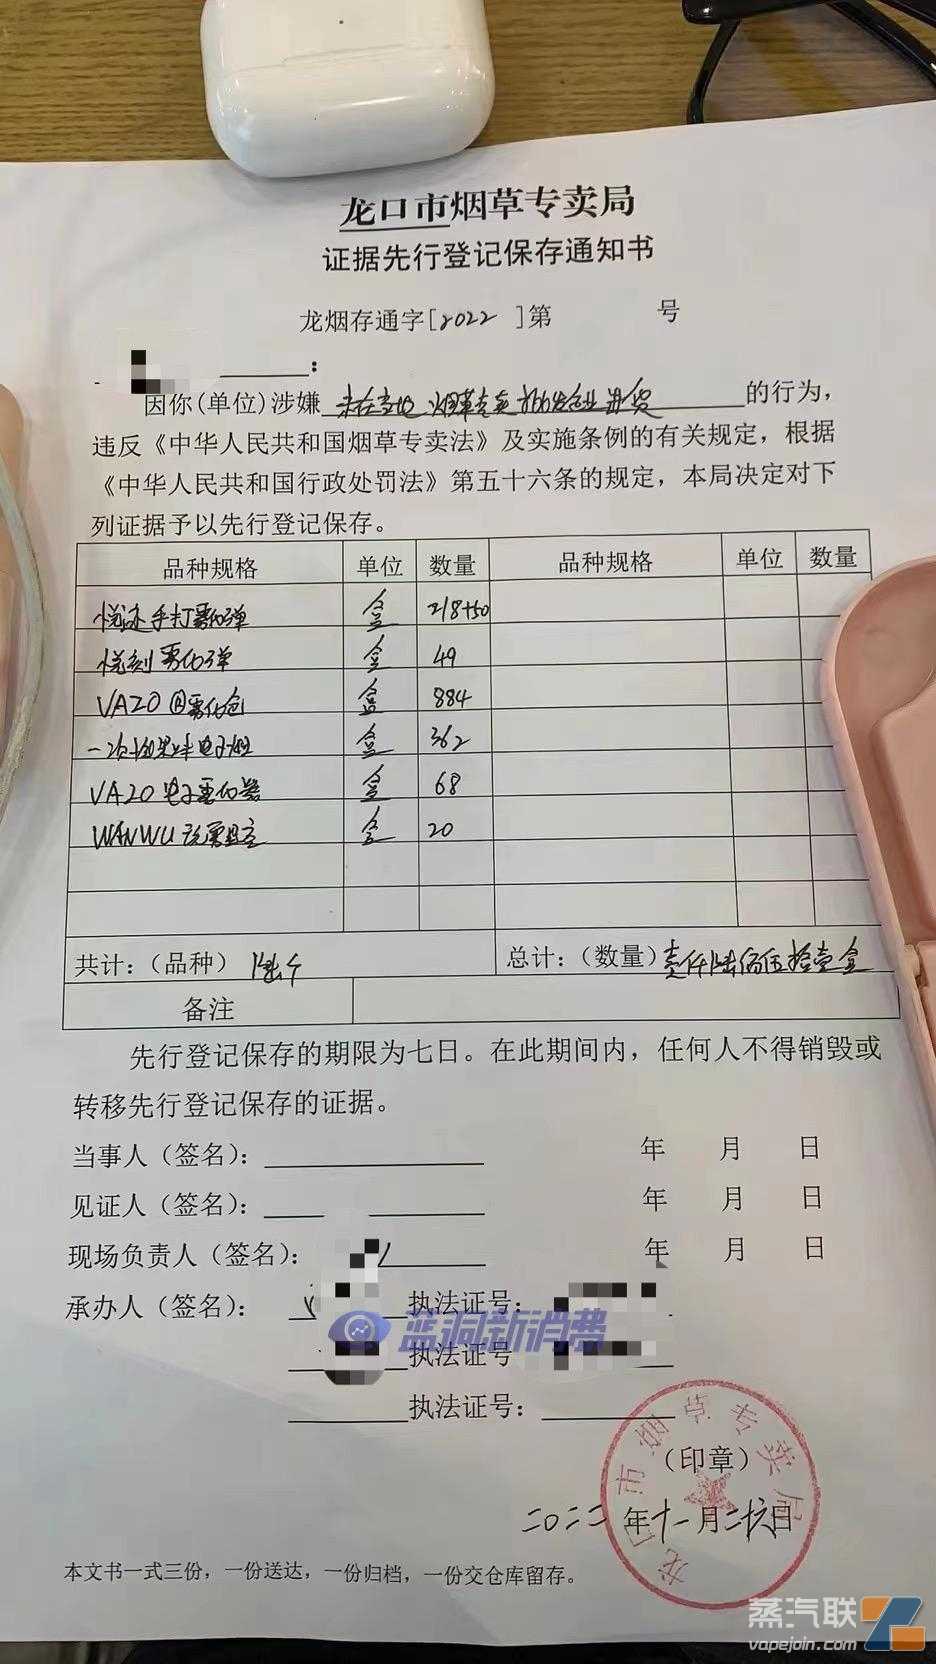 龙口市烟草专卖局
证据先行登记保存通知书
龙烟存通字[2022 ]第 号
:
因你(单位)涉嫌 未在当地烟草专卖批发企业进货 的行为，
违反《中华人民共和国烟草专卖法》及实施条例的有关规定，根据
《中华人民共和国行政处罚法》第五十六条的规定，本局决定对下
列证据予以先行登记保存。
品种规格 单位 数量 品种规格 单位 数量
手打雾化弹 盒 218+50
悦刻雾化弹 盒 49
VAZO 雾化 盒 884
一次性 电子烟 盒 362
VAZO 电子雾化器 盒 68
WANWU 盒 20
共计：（品种） 陆个 总计：（数量）壹仟陆佰伍拾壹盒
备注
先行登记保存的期限为七日。在此期间内，任何人不得销毁或
转移先行登记保存的证据。
当事人（签名）： 年 月 日
见证人（签名）： 年 月 日
现场负责人（签名）： 年 月 日
承办人（签名）： 执法证号：
蓝洞新消费
执法证号
执法证号：
龙口市烟草专卖局
（印章）
二〇二二年十一月二十六日
本文书一式三份，一份送达，一份归档，一份交仓库留存。
蒸汽联
vapejoin.com